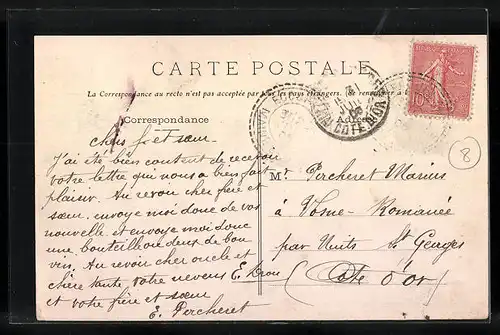 CARTE POSTALE
La Correspondance au recto n'est pas acceptée par tous les pays étrangers.
Correspondance
Adresse
CÔTE D'OR
10
8
chers f. et sœur
J'ai été bien content de recevoir
votre lettre qui nous a bien fait
plaisir. Au revoir cher frère et
sœur, envoye moi donc de vos
nouvelle et envoye moi donc
une bouteil ou deux de bon
vin. Au revoir cher oncle et
chère tante votre neveux E.
et votre frère et sœur
E. Percheret
Mr Percheret Marius
à Vosne-Romanée
par Nuits St Georges
(Côte d'Or)